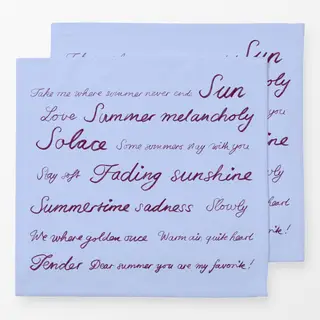 Take me where summer never ends Sun
Love Summer melancholy
Solace Some summers stay with you
Stay soft Fading sunshine
Summertime sadness Slowly
We where golden once Warm air, quite heart
Tender Dear summer you are my favorite!